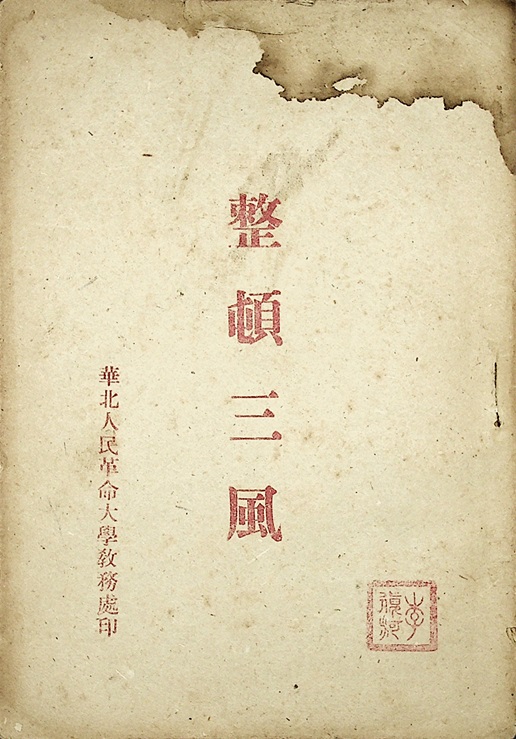 整頓三風
華北人民革命大學教務處印
李